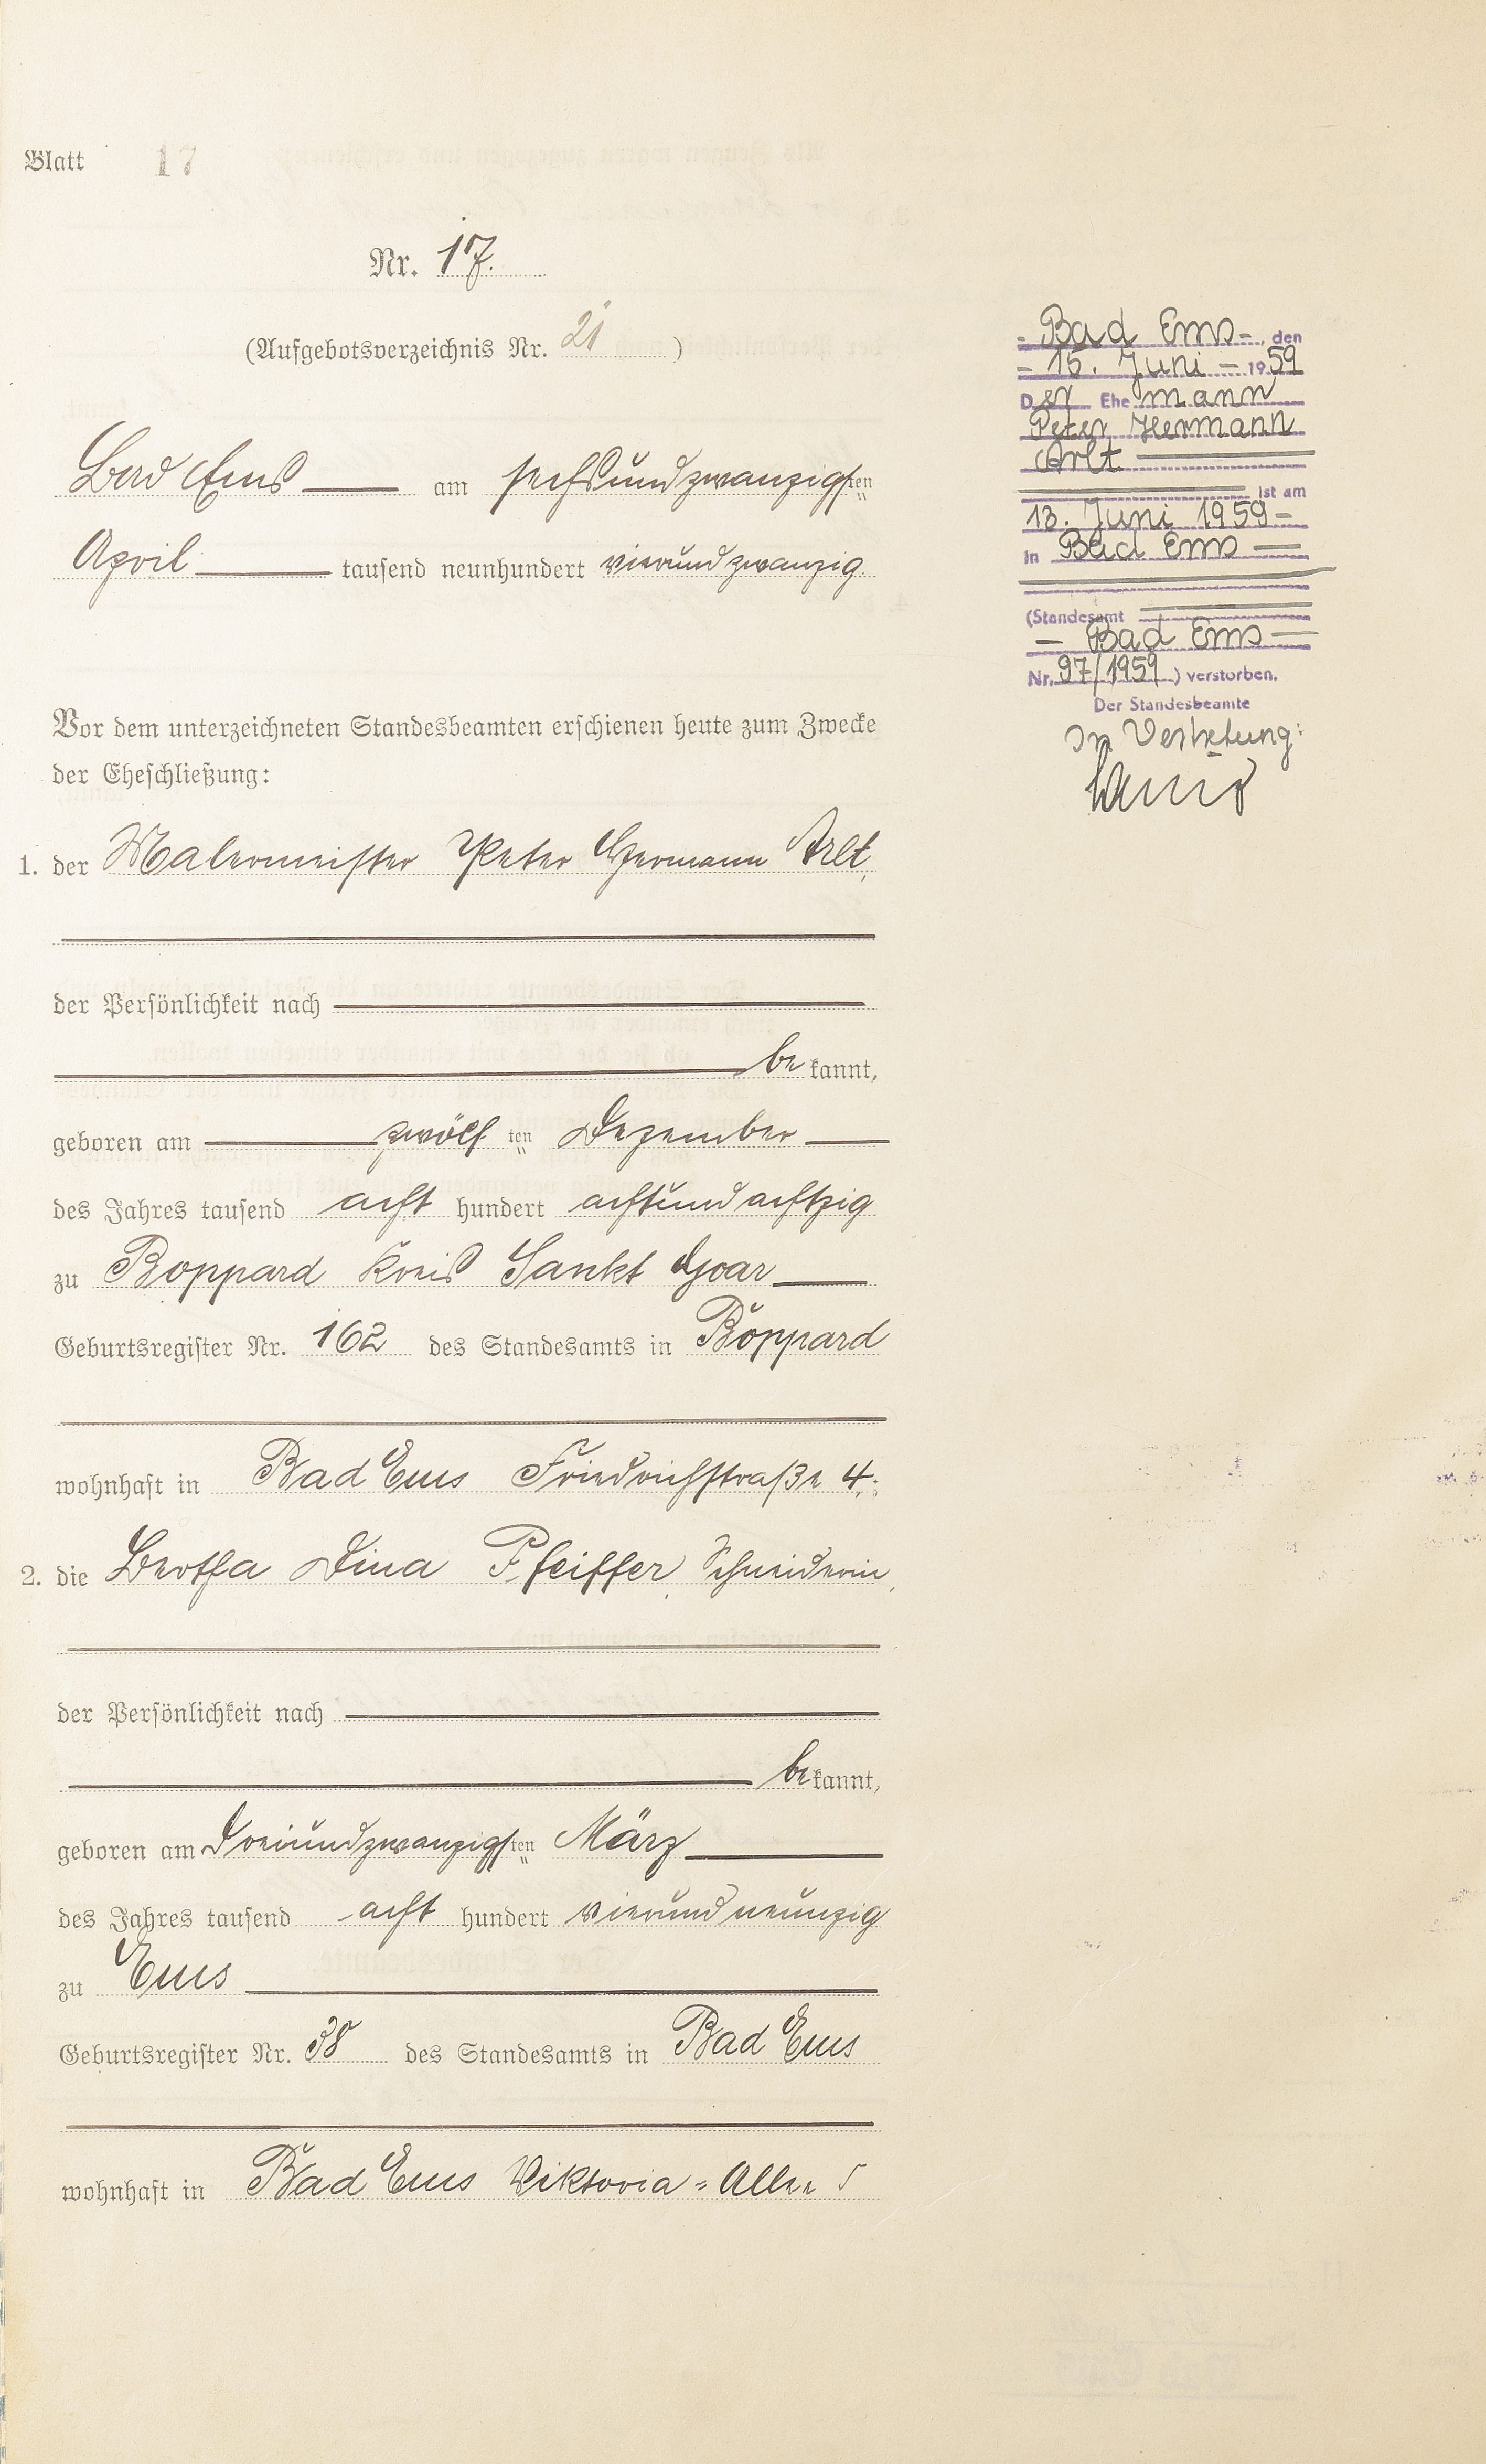 Blatt 17
Nr. 17.
(Aufgebotsverzeichnis Nr. 21 )
Bad Ems am sechsundzwanzigsten
April tausend neunhundert vierundzwanzig.
Vor dem unterzeichneten Standesbeamten erschienen heute zum Zwecke
der Eheschließung:
1. der Malermeister Peter Hermann Arlt,
der Persönlichkeit nach
bekannt,
geboren am zwölften Dezember
des Jahres tausend acht hundert achtundachtzig
zu Boppard Kreis Sankt Goar
Geburtsregister Nr. 162 des Standesamts in Boppard
wohnhaft in Bad Ems Friedrichstraße 4;
2. die Bertha Dina Pfeiffer, Schneiderin,
der Persönlichkeit nach
bekannt,
geboren am dreiundzwanzigsten März
des Jahres tausend acht hundert vierundneunzig
zu Ems
Geburtsregister Nr. 38 des Standesamts in Bad Ems
wohnhaft in Bad Ems Viktoria=Allee
- Bad Ems -, den
- 15. Juni - 1959
Der Ehemann
Peter Hermann
Arlt
ist am
13. Juni 1959 -
in Bad Ems
(Standesamt
- Bad Ems
Nr. 97/1959 ) verstorben.
Der Standesbeamte
In Vertretung: